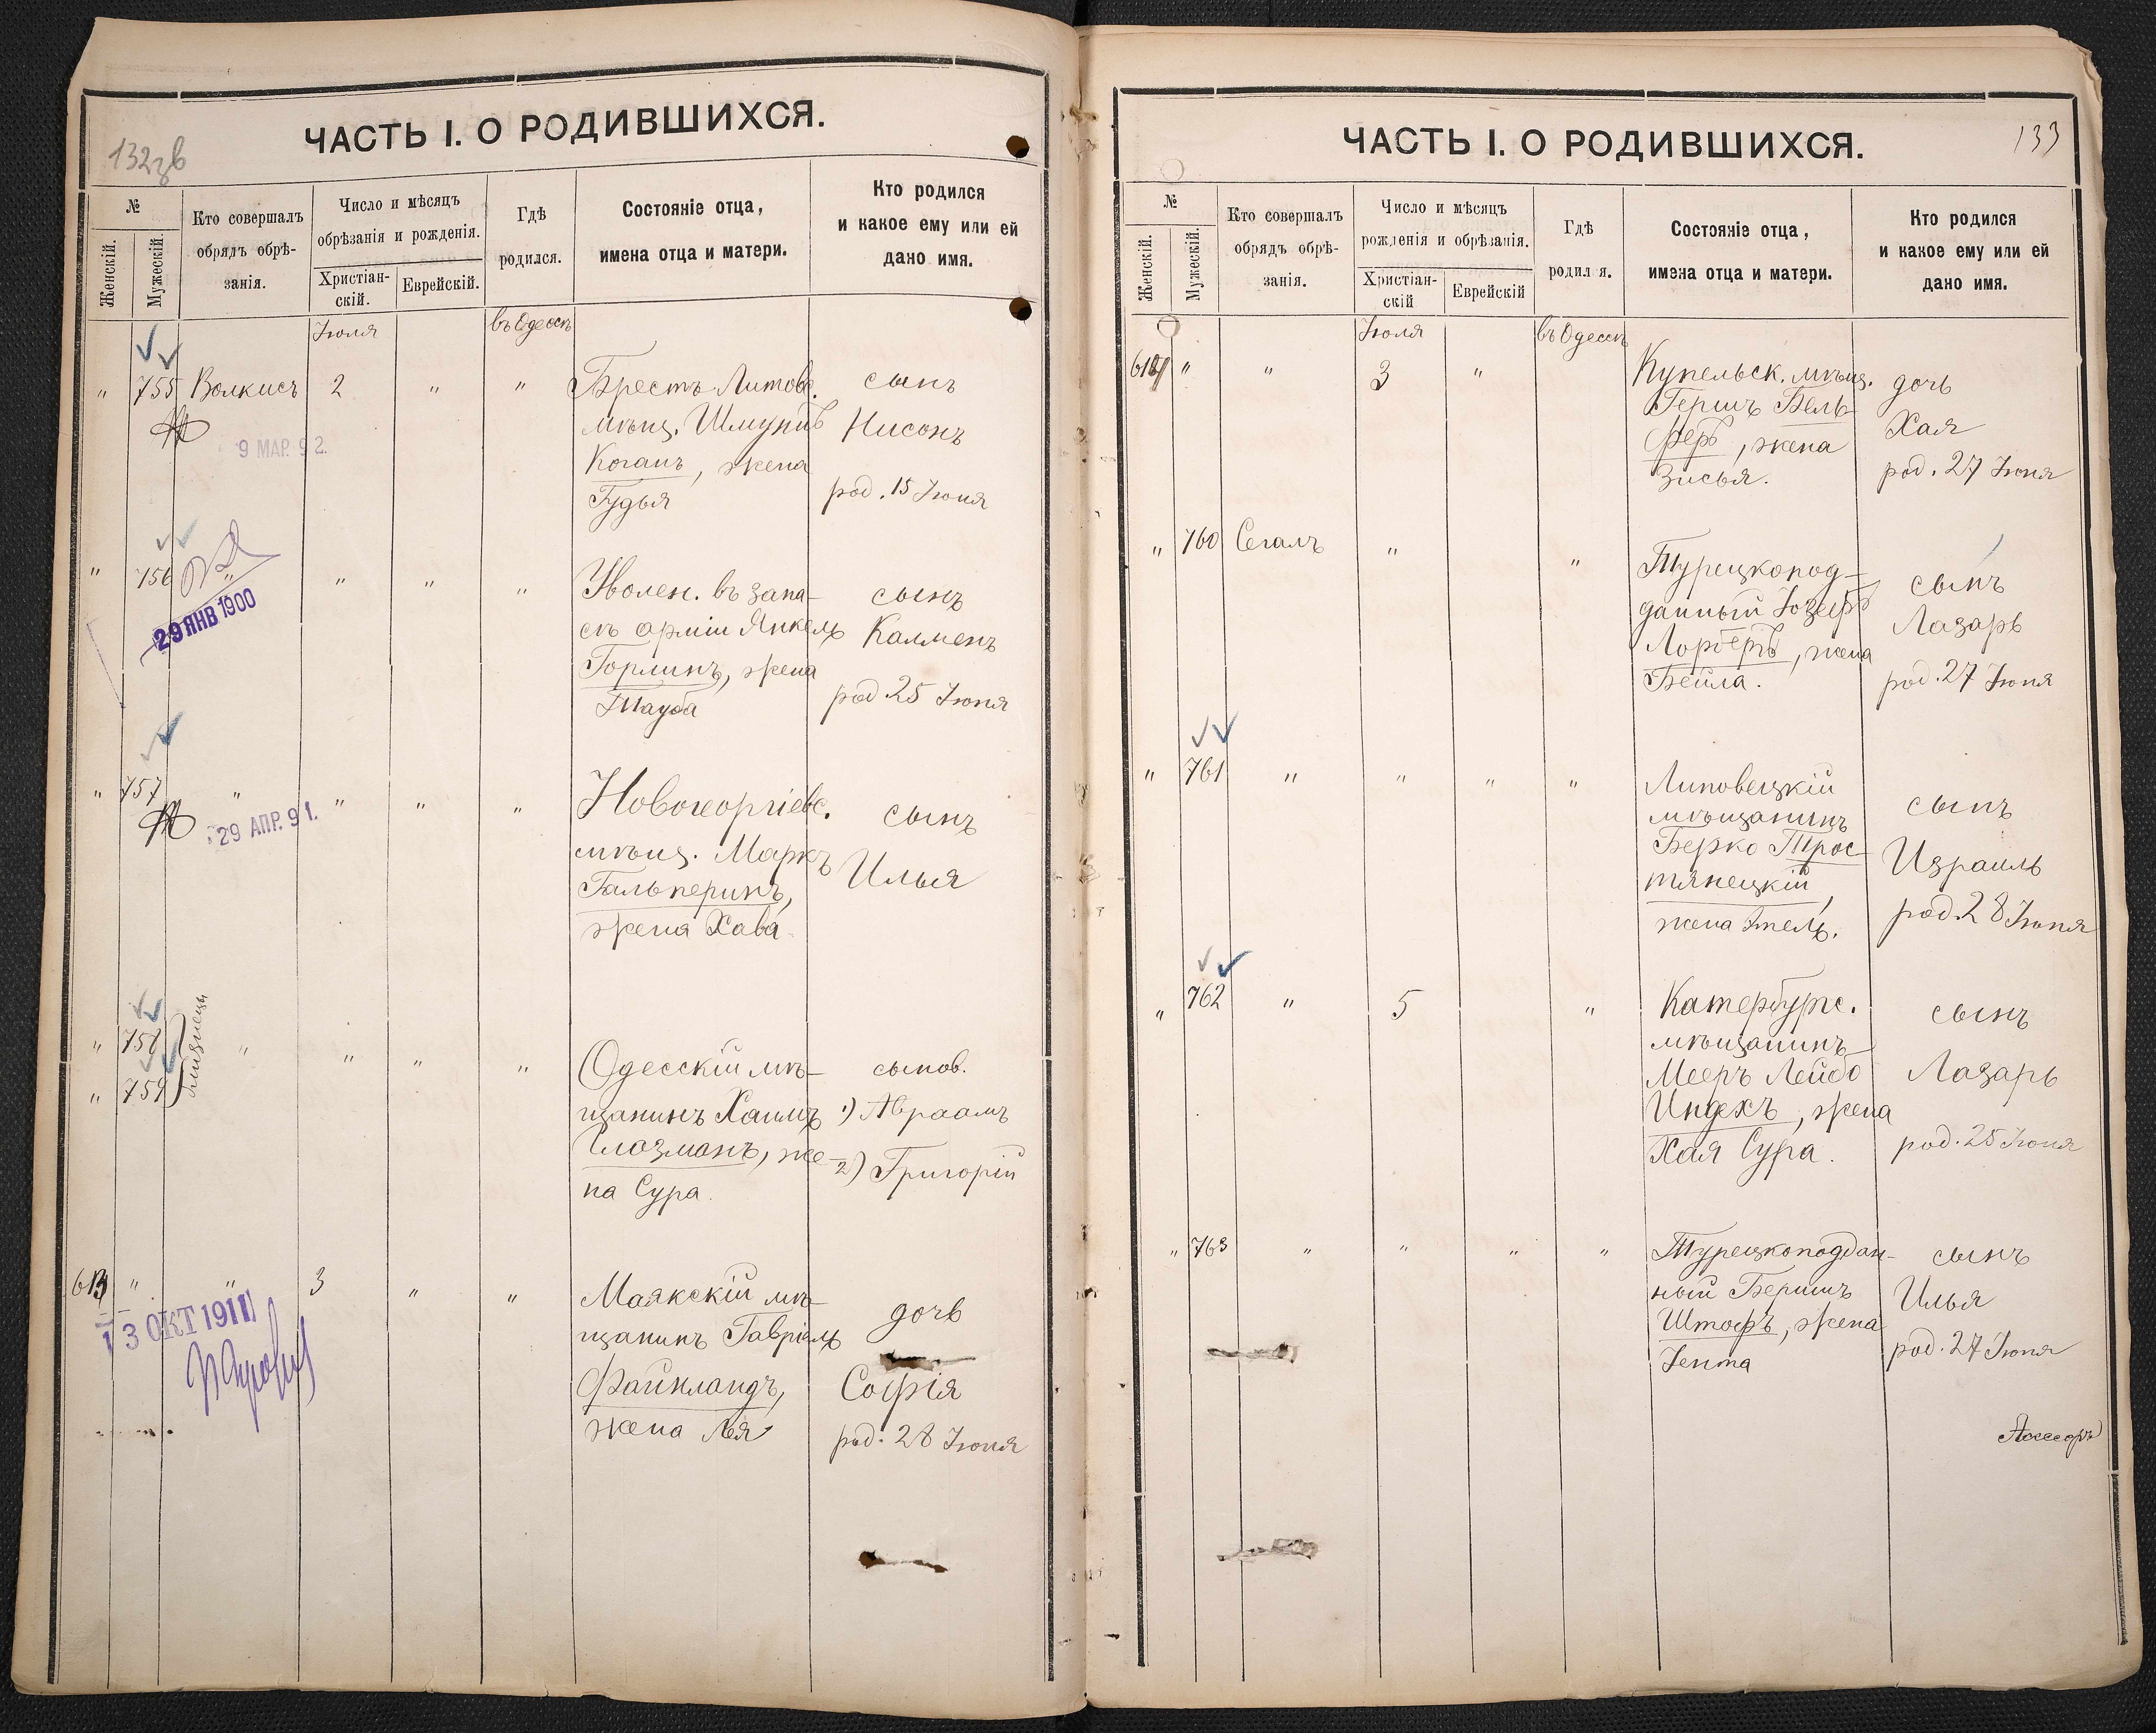 132 зв
ЧАСТЬ I. О РОДИВШИХСЯ.
№
Женскій.
Мужескій.
Кто совершалъ
обрядъ обрѣ-
занія.
Число и мѣсяцъ
обрѣзанія и рожденія.
Христіан-
скій.
Еврейскій.
Гдѣ
родился.
Состояніе отца,
имена отца и матери.
Кто родился
и какое ему или ей
дано имя.
Іюля
въ Одессѣ
" 755 Волкисъ 2 " "
Брестъ Литовс.
мѣщ. Шмунъ
Коганъ, жена
Гудья
сынъ
Нисонъ
род. 15 Іюня
9 МАР. 92.
" 756 " " " "
29 ЯНВ 1900
Уволен. въ запа-
съ арміи Янкель
Горлинъ, жена
Тауба
сынъ
Калменъ
род. 25 Іюня
" 757 " " " "
29 АПР. 91.
Новогеоргіевс.
мѣщ. Маркъ
Гальперинъ,
жена Хава
сынъ
Илья
" 758 " " " "
" 759
близнецы
Одесскій мѣ-
щанинъ Хаимъ
Глозманъ, же-
на Сура.
сынов.
1) Авраамъ
2) Григорій
613 " " 3 " "
13 ОКТ 1911
Маякскій мѣ-
щанинъ Гавріель
Файнландъ,
жена Лея
дочь
Софія
род. 28 Іюня
133
ЧАСТЬ I. О РОДИВШИХСЯ.
№
Женскій.
Мужескій.
Кто совершалъ
обрядъ обрѣ-
занія.
Число и мѣсяцъ
рожденія и обрѣзанія.
Христіан-
скій
Еврейскій
Гдѣ
родил я.
Состояніе отца,
имена отца и матери.
Кто родился
и какое ему или ей
дано имя.
Іюля
въ Одессѣ
614 " " 3 "
Купельск. мѣщ.
Гершъ Бель-
феръ, жена
Зисья.
дочь
Хая
род. 27 Іюня
" 760 Сегалъ " "
Турецкопод-
данный Іозефъ
Лорберъ, жена
Бейла.
сынъ
Лазарь
род. 27 Іюня
" 761 " " " "
Липовецкій
мѣщанинъ
Берко Трос-
тянецкій,
жена Этель.
сынъ
Израиль
род. 28 Іюня
" 762 " 5 "
Катербургс.
мѣщанинъ
Мееръ Лейбо
Индехъ, жена
Хая Сура.
сынъ
Лазарь
род. 25 Іюня
" 763 " " " "
Турецкоподдан-
ный Бершъ
Штофъ, жена
Іента
сынъ
Илья
род. 27 Іюня